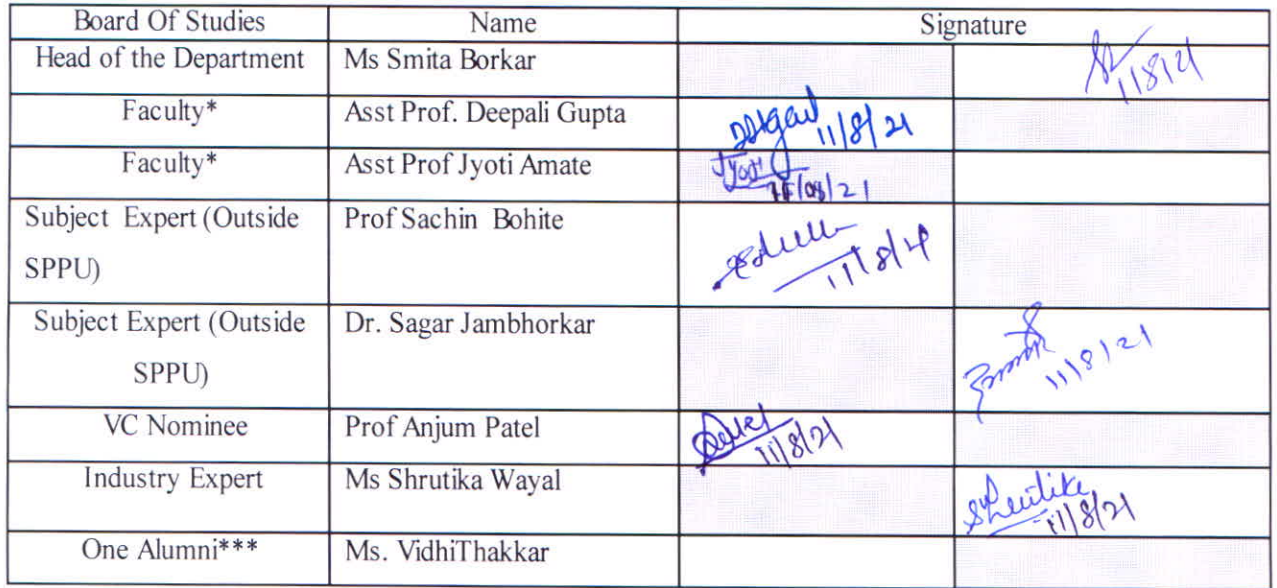 Board Of Studies Name Signature
Head of the Department Ms Smita Borkar 11/8/21
Faculty* Asst Prof. Deepali Gupta 11/8/21
Faculty* Asst Prof Jyoti Amate Jyoti 11/08/21
Subject Expert (Outside SPPU) Prof Sachin Bohite 11/8/21
Subject Expert (Outside SPPU) Dr. Sagar Jambhorkar 11/8/21
VC Nominee Prof Anjum Patel 11/8/21
Industry Expert Ms Shrutika Wayal Shrutika 11/8/21
One Alumni*** Ms. VidhiThakkar